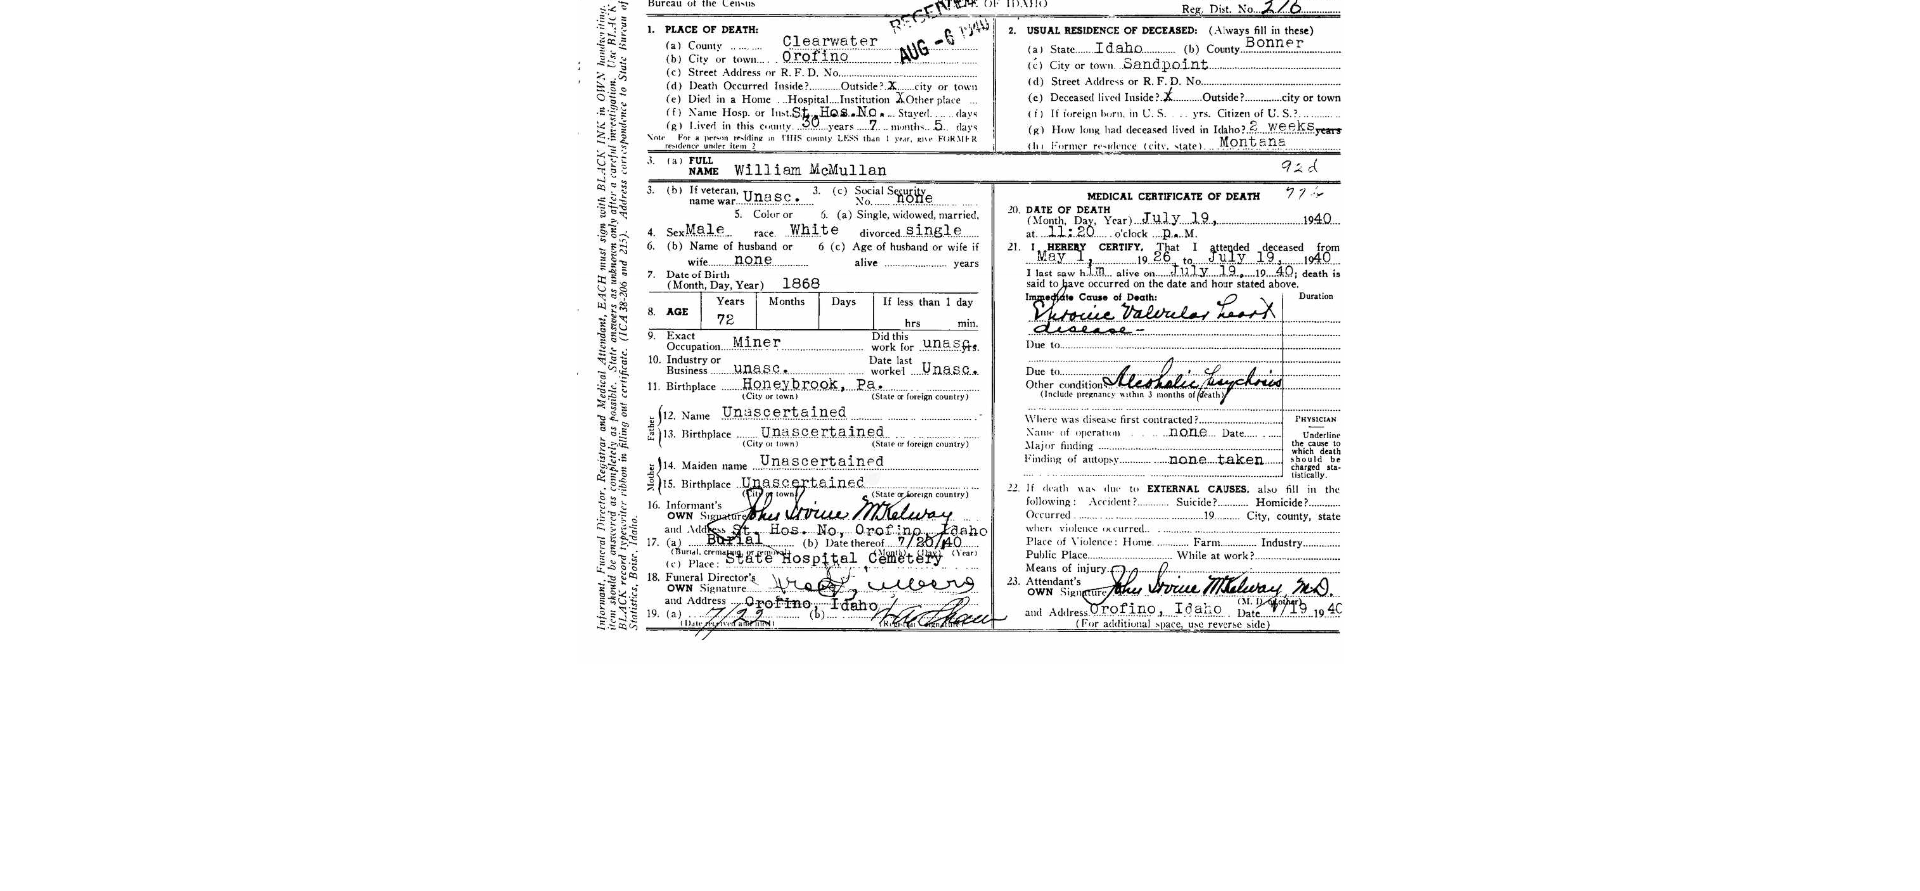 Bureau of the Census
OF IDAHO
Reg. Dist. No. 276
RECEIVED
AUG -6 1940
1. PLACE OF DEATH:
(a) County Clearwater
(b) City or town Orofino
(c) Street Address or R. F. D. No.
(d) Death Occurred Inside? Outside? X city or town
(e) Died in a Home Hospital Institution X Other place
(f) Name Hosp. or Inst. St. Hos. No. Stayed days
(g) Lived in this county 30 years 7 months 5 days
Note For a person residing in THIS county LESS than 1 year, give FORMER
residence under item 2
2. USUAL RESIDENCE OF DECEASED: (Always fill in these)
(a) State Idaho (b) County Bonner
(c) City or town Sandpoint
(d) Street Address or R. F. D. No.
(e) Deceased lived Inside? X Outside? city or town
(f) If foreign born, in U. S. yrs. Citizen of U. S.?
(g) How long had deceased lived in Idaho? 2 weeks years
(h) Former residence (city, state) Montana
3. (a) FULL
NAME William McMullan
92d
3. (b) If veteran, 3. (c) Social Security
name war Unasc. No. none
5. Color or 6. (a) Single, widowed, married,
4. Sex Male race White divorced single
6. (b) Name of husband or 6 (c) Age of husband or wife if
wife none alive years
7. Date of Birth
(Month, Day, Year) 1868
8. AGE Years Months Days If less than 1 day
72 hrs min.
9. Exact Did this
Occupation Miner work for unasc. yrs.
10. Industry or Date last
Business unasc. worked Unasc.
11. Birthplace Honeybrook, Pa.
(City or town) (State or foreign country)
Father
12. Name Unascertained
13. Birthplace Unascertained
(City or town) (State or foreign country)
Mother
14. Maiden name Unascertained
15. Birthplace Unascertained
(City or town) (State or foreign country)
16. Informant's
OWN Signature John Irvine McKelway
and Address St. Hos. No, Orofino, Idaho
17. (a) Burial (b) Date thereof 7/20/40
(Burial, cremation, or removal) (Month) (Day) (Year)
(c) Place: State Hospital Cemetery
18. Funeral Director's
OWN Signature
and Address Orofino, Idaho
19. (a) 7/22 (b)
(Date received and filed) (Registrar's signature)
MEDICAL CERTIFICATE OF DEATH
20. DATE OF DEATH
(Month, Day, Year) July 19, 1940
at 11:20 o'clock p. M.
21. I HEREBY CERTIFY, That I attended deceased from
May 1, 1926 to July 19, 1940
I last saw him alive on July 19, 1940; death is
said to have occurred on the date and hour stated above.
Immediate Cause of Death: Duration
Chronic Valvular heart
disease -
Due to
Due to
Other condition Alcoholic psychosis
(Include pregnancy within 3 months of death)
Where was disease first contracted?
Name of operation none Date
Major finding
Finding of autopsy none taken
PHYSICIAN
Underline
the cause to
which death
should be
charged sta-
tistically.
22. If death was due to EXTERNAL CAUSES, also fill in the
following: Accident? Suicide? Homicide?
Occurred 19 City, county, state
where violence occurred
Place of Violence: Home Farm Industry
Public Place While at work?
Means of injury
23. Attendant's
OWN Signature John Irvine McKelway, M.D.
(M. D. or other)
and Address Orofino, Idaho Date 7/19 1940
(For additional space, use reverse side)
Informant, Funeral Director, Registrar and Medical Attendant, EACH must sign with BLACK INK in OWN handwriting.
item should be answered as completely as possible. State answers as unknown only after a careful investigation. Use BLACK
BLACK record typewriter ribbon in filling out certificate. (ICA 38-206 and 215). Address correspondence to State Bureau of
Statistics, Boise, Idaho.